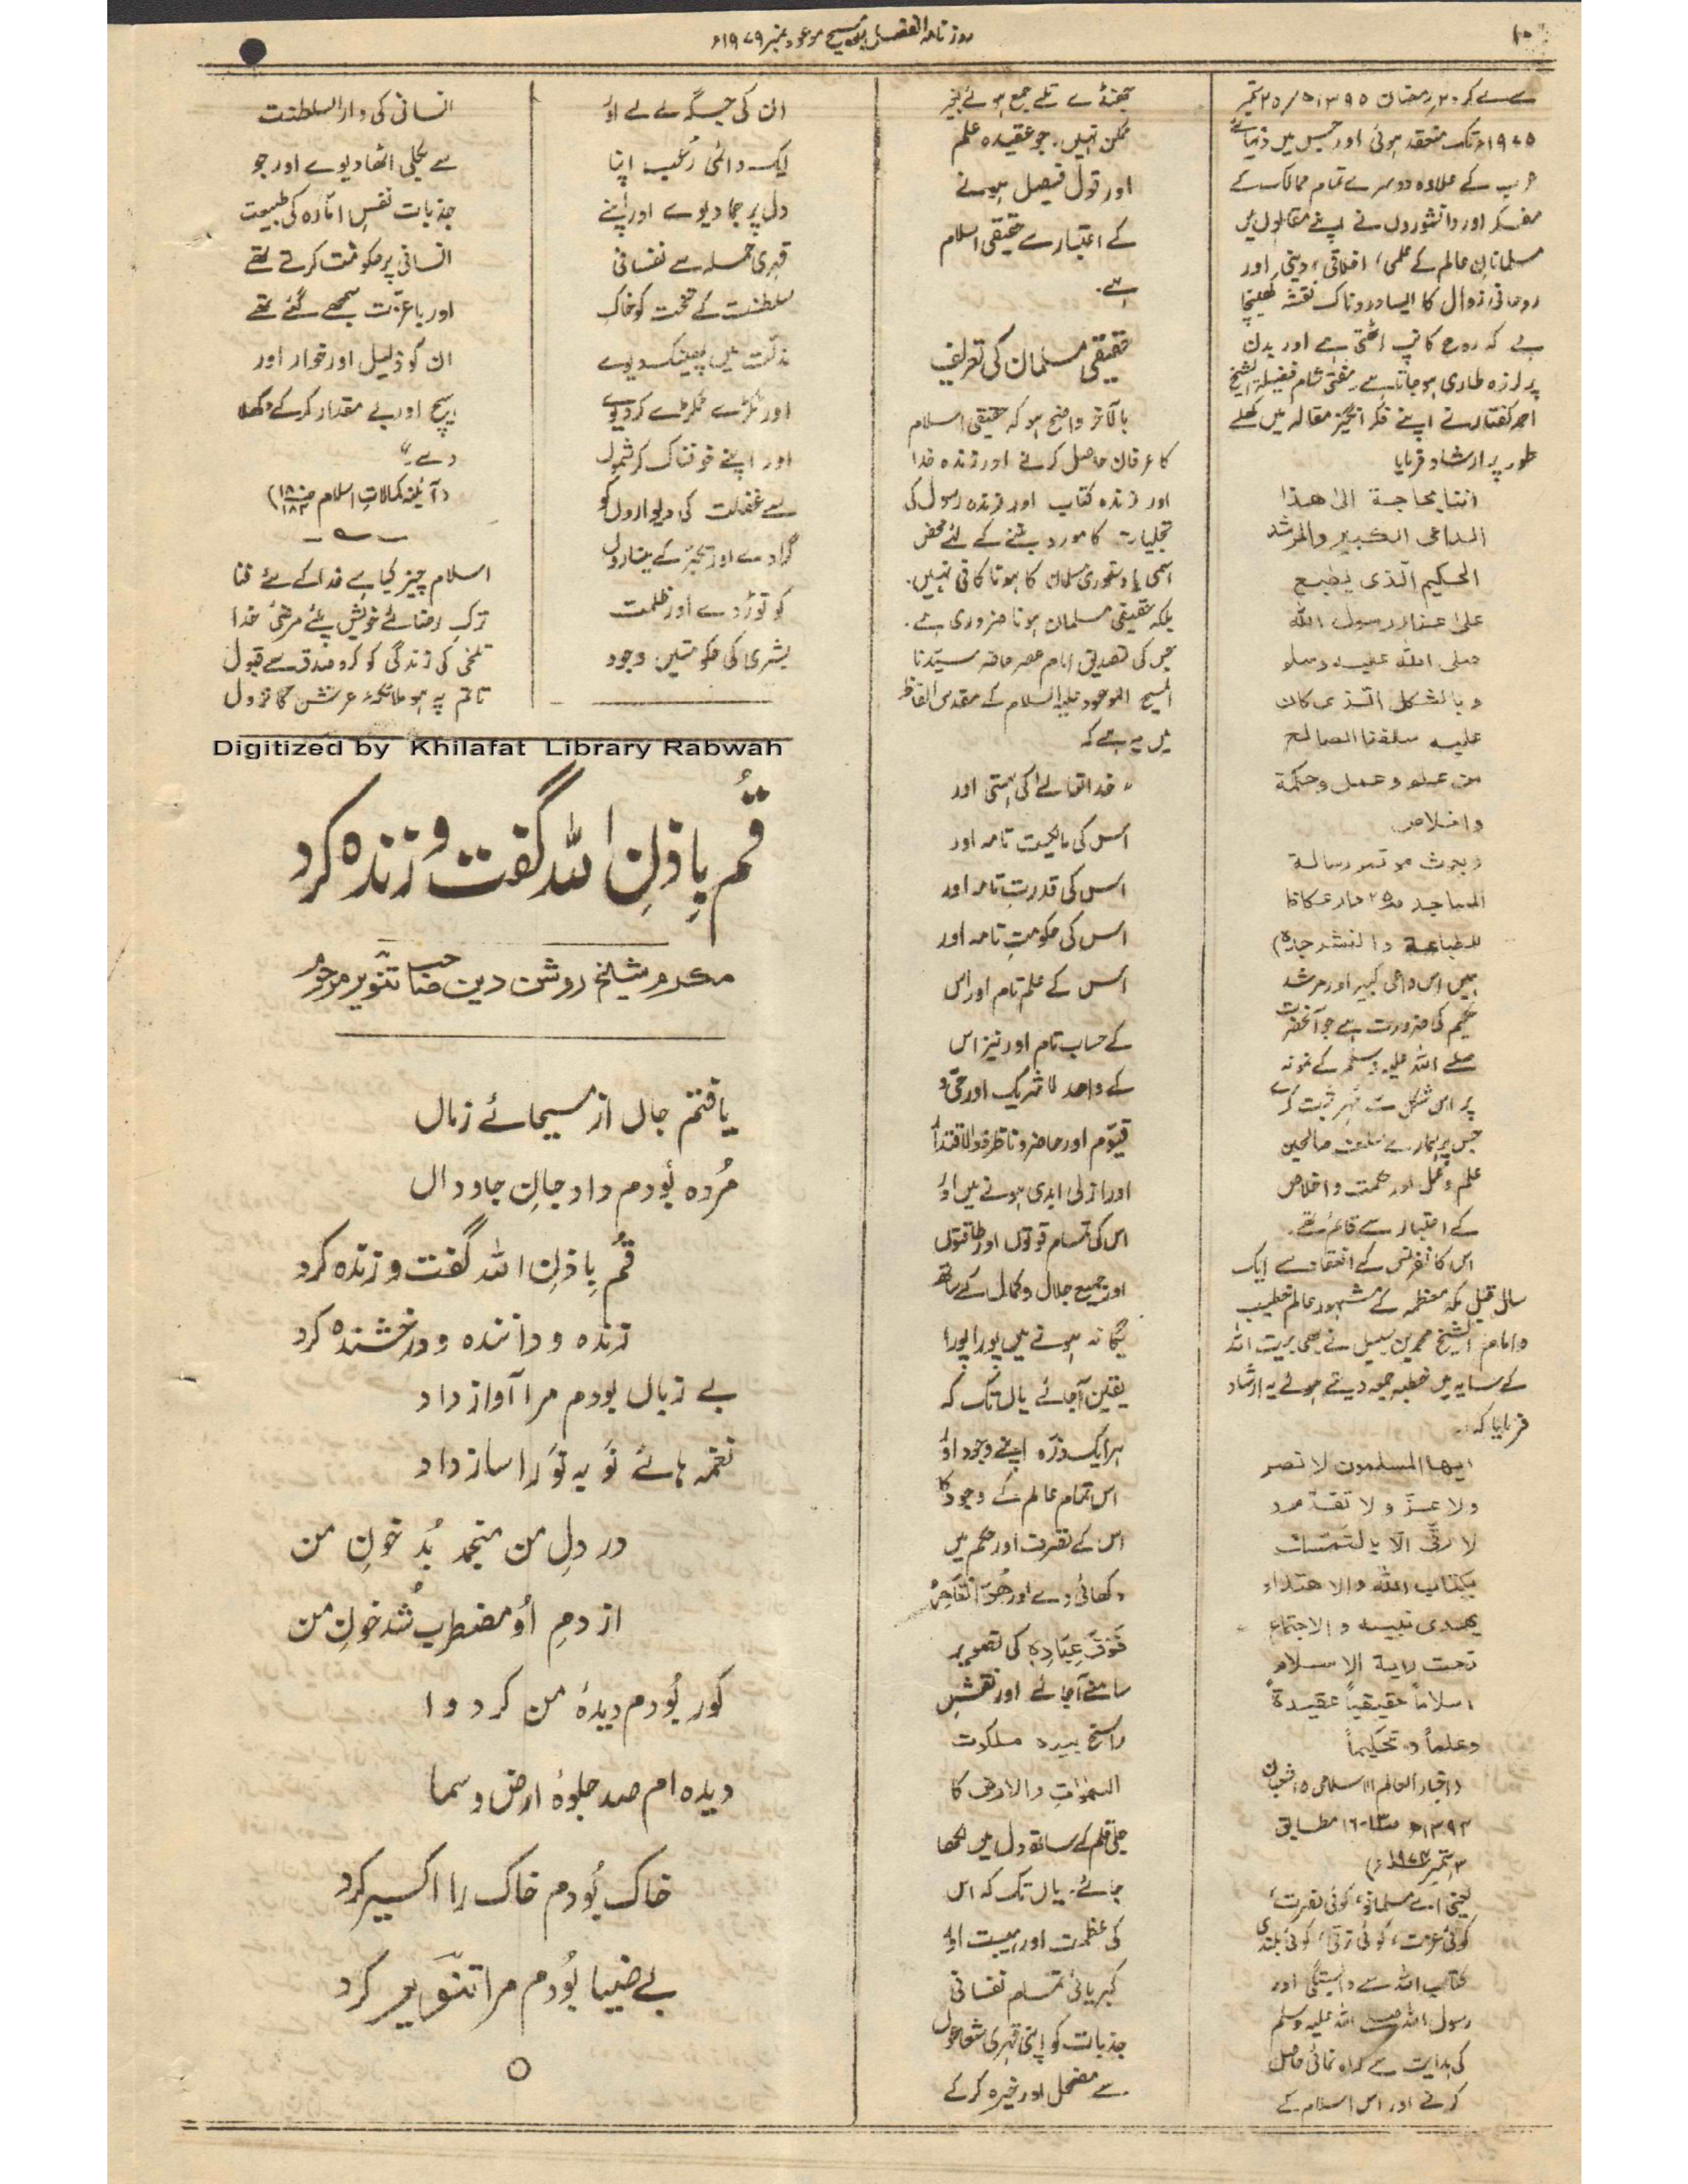 ۱۰
روزنامہ الفضل ربوہ مسیح موعود نمبر ۱۹۷۹ء
سے لے کر ۲۰ رمضان ۱۳۹۵ھ / ۲۵ ستمبر
۱۹۷۵ء تک منعقد ہوئی اور جس میں دنیائے
عرب کے علاوہ دوسرے تمام ممالک کے
مفکر اور دانشوروں نے اپنے مقالوں میں
مسلمانان عالم کے علمی، اخلاقی، دینی اور
روحانی زوال کا ایسا دردناک نقشہ کھینچا
ہے کہ روح کانپ اٹھتی ہے اور بدن
پر لرزہ طاری ہو جاتا ہے۔ مفتی شام فضیلۃ الشیخ
احمد کفتارو نے اپنے فکر انگیز مقالہ میں کھلے
طور پر ارشاد فرمایا
اننا بحاجة الیٰ هذا
الداعی الکبیر والمرشد
الحکیم الّذی یطبع
علیٰ غرار رسول اللّٰه
صلی اللّٰه علیه وسلم
وبالشکل الّذی کان
علیه سلفنا الصالح
من علم وعمل وحکمة
واخلاص
(بحوث موتمر رسالة
المساجد ص۲۵ دار عکاظ
للطباعة والنشر جدہ)
ہمیں اس داعی کبیر اور مرشد
حکیم کی ضرورت ہے جو آنحضرت
صلے اللہ علیہ وسلم کے نمونہ
پر اس شکل سے مُہر ثبت کرے
جس پر ہمارے سلف صالحین
علم و عمل اور حکمت و اخلاص
کے اعتبار سے قائم تھے۔
اس کانفرنس کے انعقاد سے ایک
سال قبل مکہ معظمہ کے مشہور عالم خطیب
و امام الشیخ محمد بن سبیل نے بھی بیت اللہ
کے سایہ میں خطبہ جمعہ دیتے ہوئے یہ ارشاد
فرمایا کہ:۔
ایها المسلمون لا نصر
ولا عزّ ولا تقدّم و
لا رقّی الّا بالتمسّک
بکتاب اللّٰه والاهتداء
بهدی نبیه والاجتماع
تحت رایة الاسلام
اسلاماً حقیقیاً عقیدةً
وعلماً و تحکیماً
(اخبار العالم الاسلامی ۱۵ شعبان
۱۳۹۴ھ ص ۱۳-۱۶ مطابق
۲ ستمبر ۱۹۷۴ء)
یعنی اے مسلمانو! کوئی نصرت،
کوئی عزت، کوئی ترقی، کوئی بلندی
کتاب اللہ سے وابستگی اور
رسول اللہ صلی اللہ علیہ وسلم
کی ہدایت سے راہ نمائی حاصل
کرنے اور اس اسلام کے
جھنڈے تلے جمع ہوئے بغیر
ممکن نہیں۔ جو عقیدہ علم
اور قول فیصل ہونے
کے اعتبار سے حقیقی اسلام
ہے۔
حقیقی مسلمان کی تعریف
بالآخر واضح ہو کہ حقیقی اسلام
کا عرفان حاصل کرنے اور زندہ خدا
اور زندہ کتاب اور زندہ رسول کی
تجلیات کا مورد بننے کے لئے محض
اسمی یا دستوری مسلمان کا ہونا کافی نہیں۔
بلکہ حقیقی مسلمان ہونا ضروری ہے۔
جس کی تصدیق امام عصر حاضر سیّدنا
المسیح الموعود علیہ السلام کے مقدس الفاظ
میں یہ ہے کہ
"خدا تعالےٰ کی ہستی اور
اس کی مالکیت تامہ اور
اس کی قدرتِ تامہ اور
اس کی حکومتِ تامہ اور
اس کے علم تام اور اس
کے حساب تام اور نیز اس
کے واحد لا شریک اور حیّ و
قیّوم اور حاضر و ناظر ذوالاقتدار
اور ازلی ابدی ہونے میں اور
اس کی تمام قوتوں اور طاقتوں
اور جمیع جلال و کمال کے ساتھ
یگانہ ہونے میں پورا پورا
یقین آ جائے یاں تک کہ
ہر ایک ذرّہ اپنے وجود اور
اس تمام عالم کے وجود کا
اس کے تصرف اور حکم میں
دکھائی دے اور ھُوَ الْقَاھِرُ
فَوْقَ عِبَادِہٖ کی تصویر
سامنے آ جائے اور نقش
راسخ بیدہ ملکوت
السّمٰوٰت والارض کا
جلی قلم کے ساتھ دل میں لکھا
جائے۔ یاں تک کہ اس
کی عظمت اور ہیبت اور
کبریائی تمام نفسانی
جذبات کو اپنی قہری شعاعوں
سے مضمحل اور خیرہ کر کے
ان کی جگہ لے لے اور
ایک دائمی رُعب اپنا
دل پر جما دیوے اور اپنے
قہری حملہ سے نفسانی
سلطنت کے تخت کو خاک
مذلّت میں پھینک دیوے
اور ٹکڑے ٹکڑے کر دیوے
اور اپنے خوفناک کرشموں
سے غفلت کی دیواروں کو
گرا دے اور تکبّر کے میناروں
کو توڑ دے اور ظلمت
بشری کی حکومتیں وجود
انسانی کی دار السلطنت
سے بکلی اٹھا دیوے اور جو
جذبات نفسِ امّارہ کی طبیعت
انسانی پر حکومت کرتے تھے
اور باعزّت سمجھے گئے تھے
ان کو ذلیل اور خوار اور
ہیچ اور بے مقدار کر کے دکھلا
دے۔"
(آئینہ کمالاتِ اسلام ص۱۸۰-۱۸۲)
اسلام چیز کیا ہے خدا کے لئے فنا
ترکِ رضائے خویش پئے مرضئ خدا
تلخی کی زندگی کو کرو صدق سے قبول
تا تم پہ ہو ملائکۂ عرش کا نزول
Digitized by Khilafat Library Rabwah
قُم بِاِذنِ اللّٰہ گفت و زندہ کرد
مکرم شیخ روشن دین صاحب تنویر مرحوم
یافتم جاں از مسیحائے زماں
مُردہ بُودم داد جانِ جاوداں
قُم بِاِذنِ اللّٰہ گفت و زندہ کرد
زندہ و دانندہ و درخشندہ کرد
بے زباں بودم مرا آواز داد
نغمہ ہائے نَو بہ نَو را ساز داد
در دلِ من منجمد بُد خونِ من
از دمِ اُو مضطرب شُد خونِ من
کور بُودم دیدۂ من کرد وا
دیدہ ام صد جلوۂ ارض و سما
خاک بُودم خاک را اکسیر کرد
بے ضیا بُودم مرا تنویر کرد